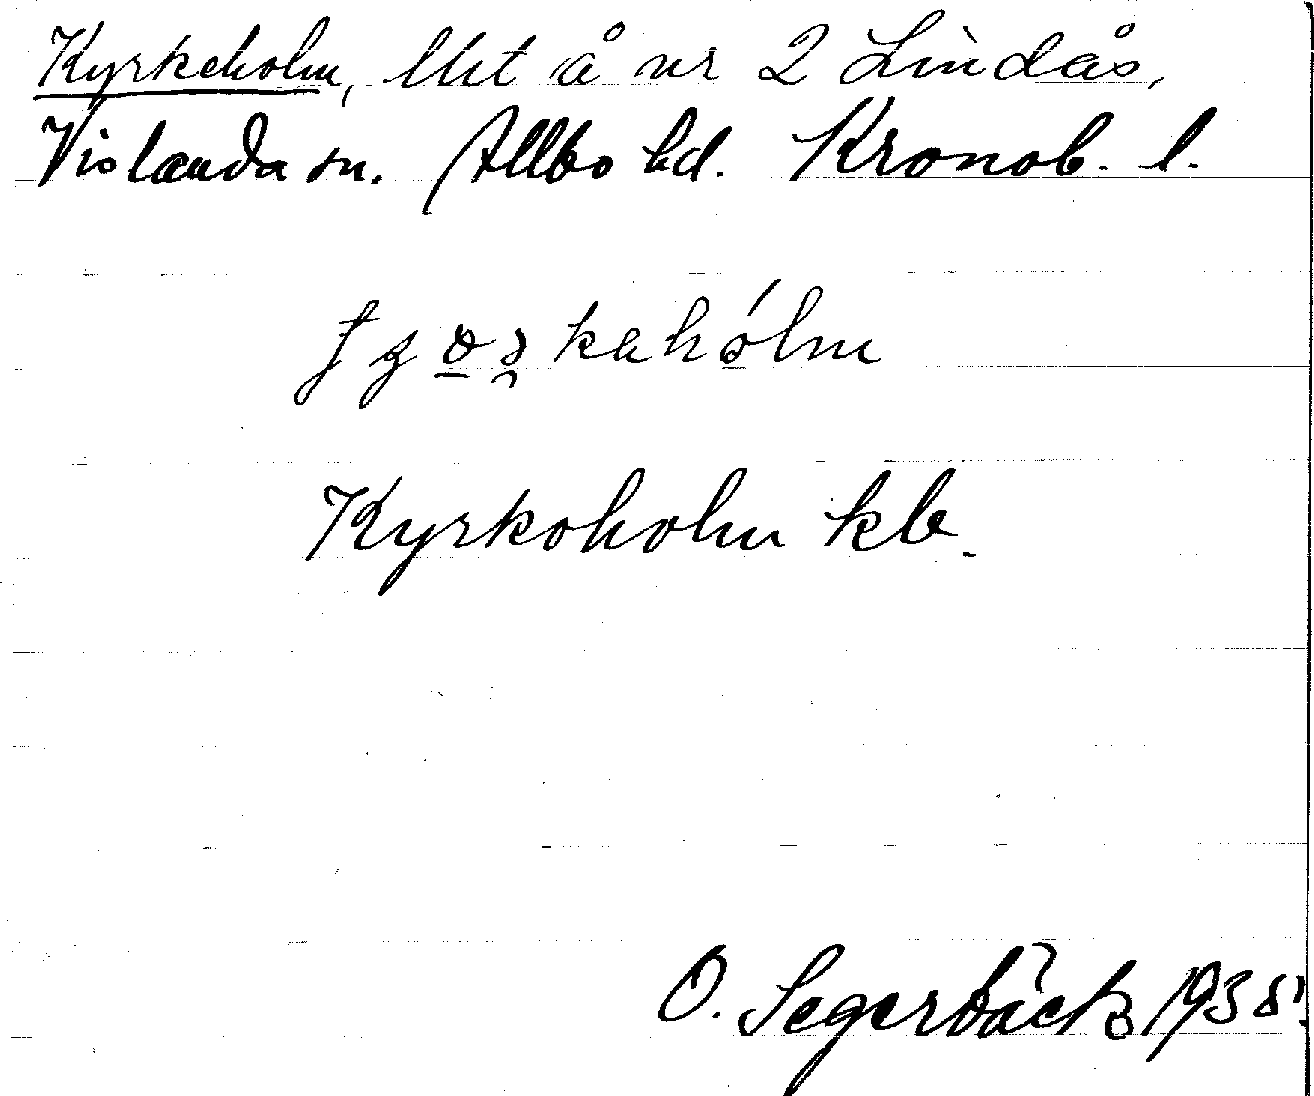 Kyrkeholm, lht å nr 2 Lindås,
Vislanda sn. Allbo hd. Kronob. l.
Kyrkoholm kb.
O. Segerbäck 1935.